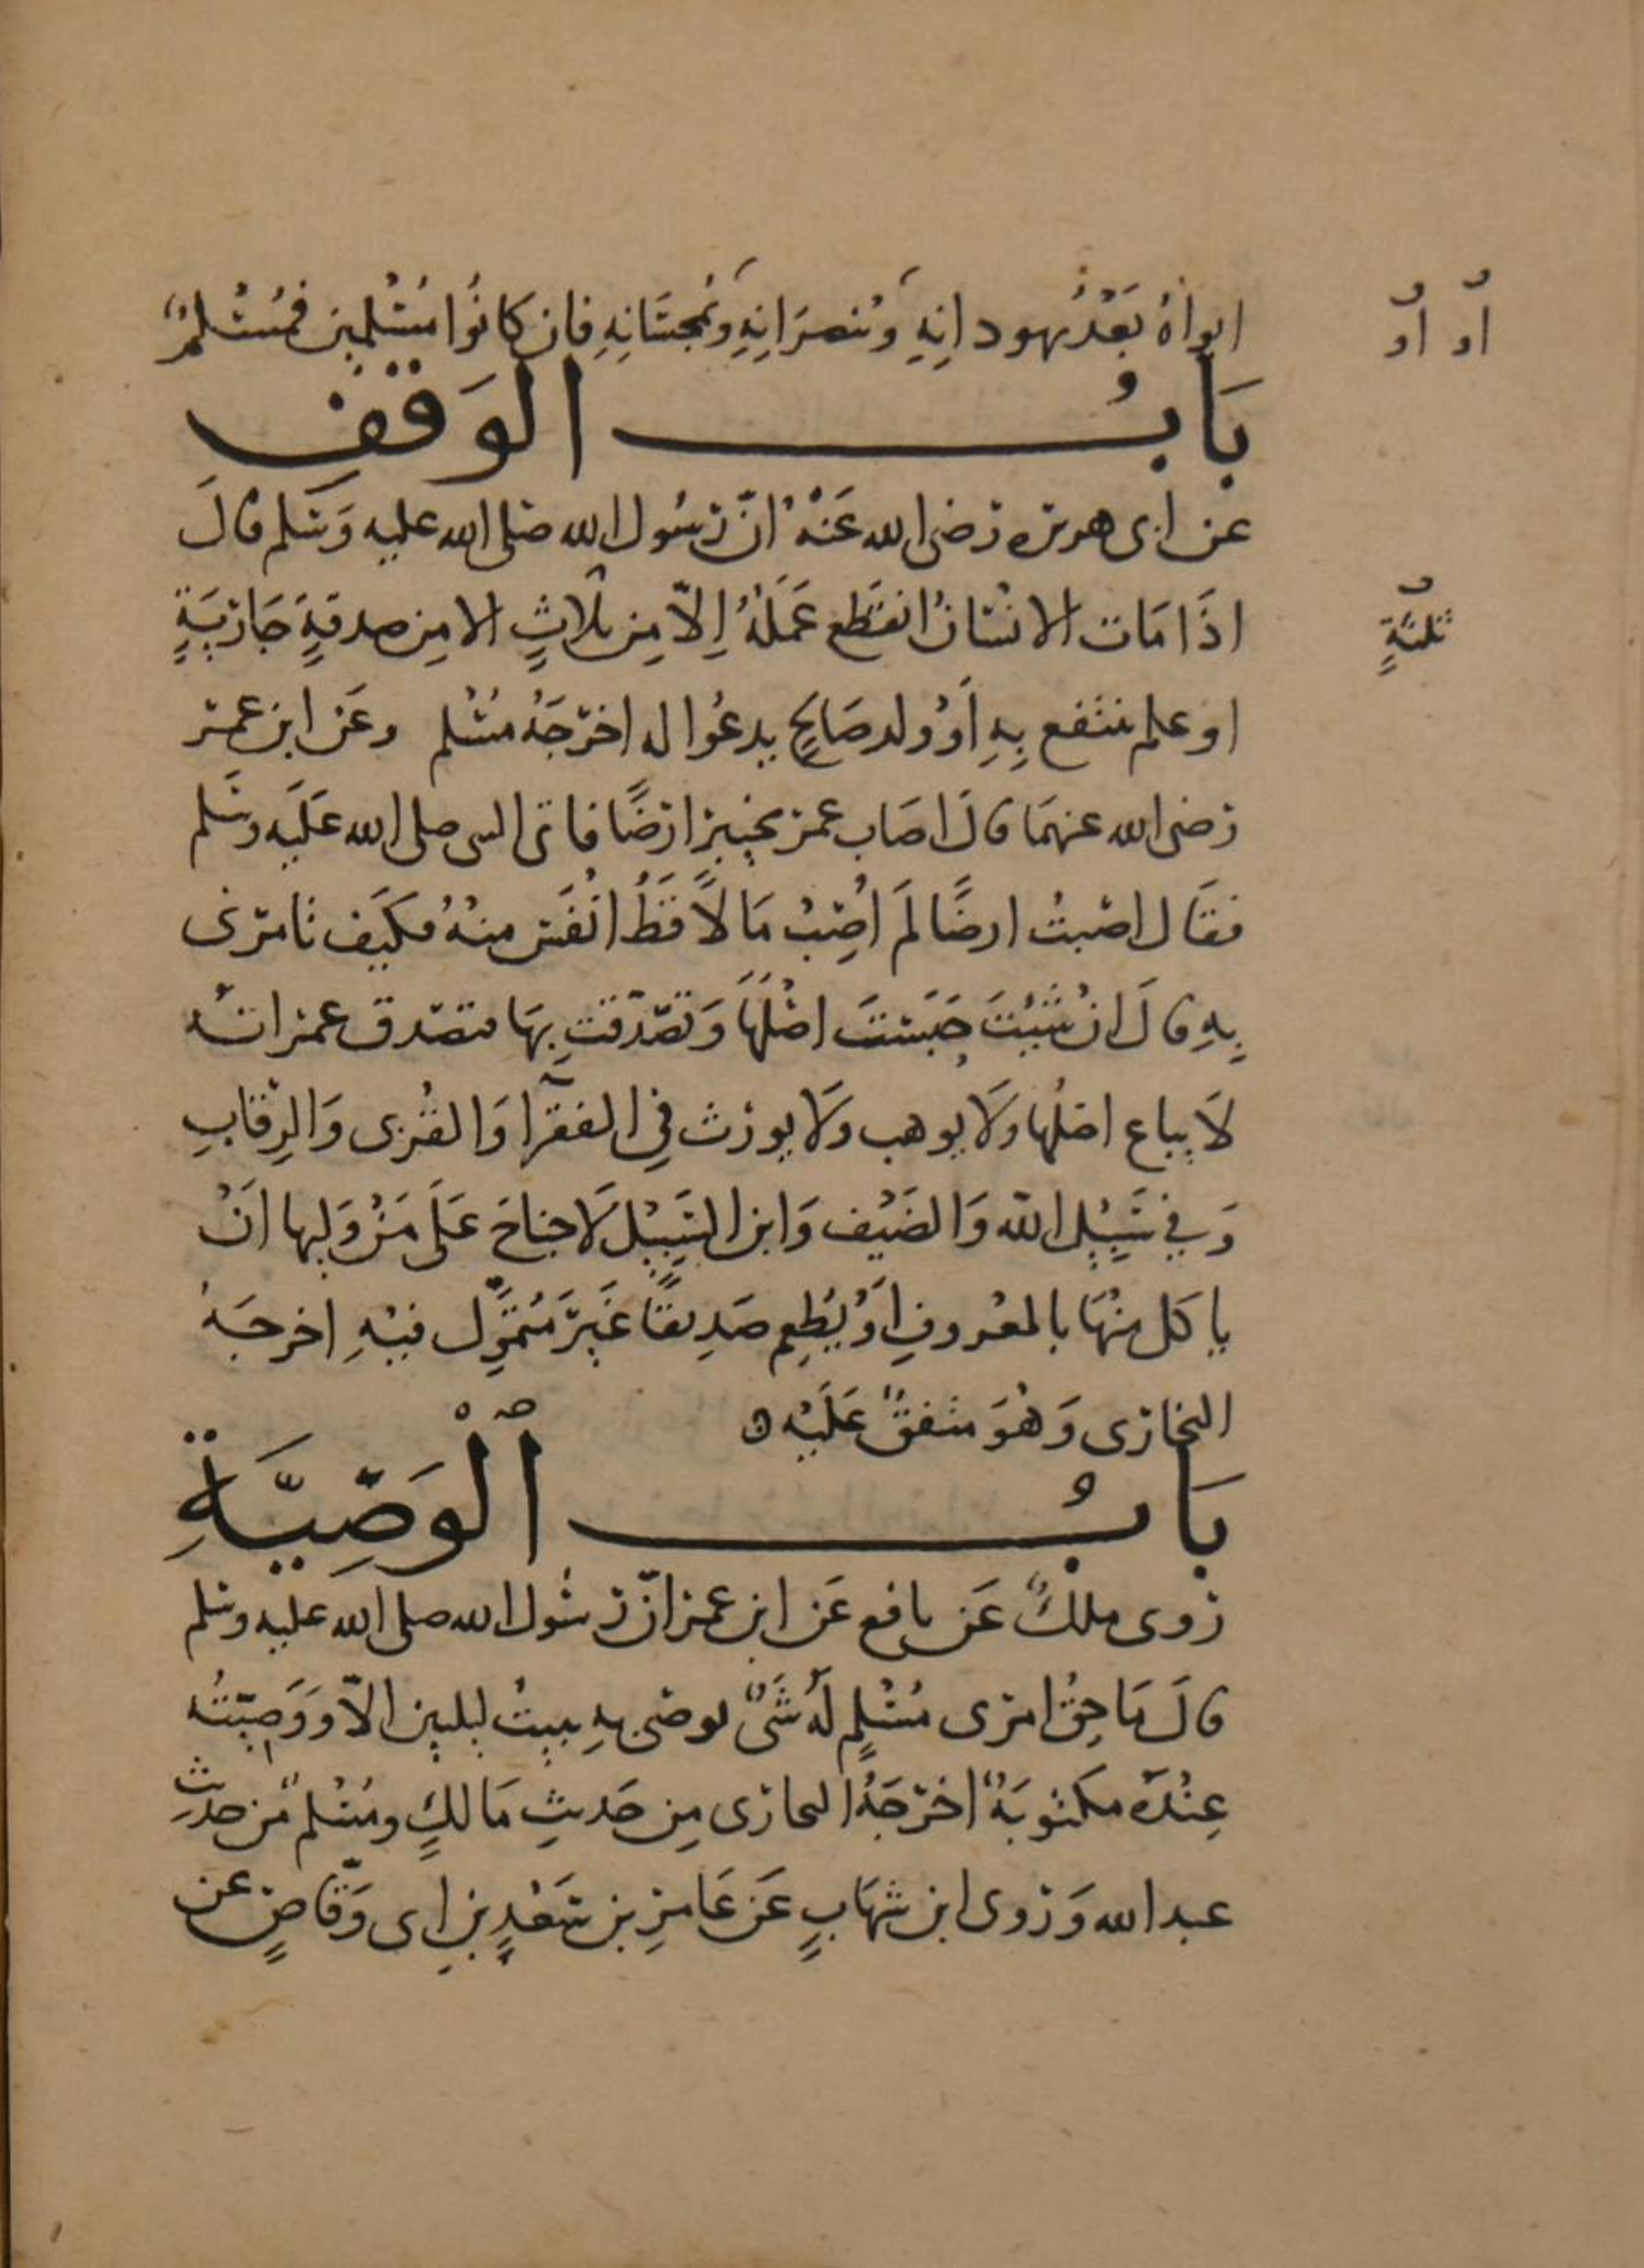 ابواهُ بَعْدُ يهود انِهِ وَيُنصرَانِهِ وَيُمجسَانِهِ فان كَانُوا مُسْلمين فمُسْلمٌ
او او
بَابُ الوَقفِ
عن ابى هريره رضى الله عَنْهُ انّ رسُول الله صَلى الله عليه وَسَلم قالَ
اذَا مَات الانسَانُ انقَطع عَمَلُهُ اِلاّ مِن ثلاثٍ الا مِن صدقةٍ جَاريَةٍ
ثلثةٍ
او علم ينتفع بِهِ اَوْ ولد صَالحٍ يدعُوا له اخرَجَهُ مسْلم وعَن ابن عمر
رضى الله عنهمَا قالَ اصَاب عمر بخيبر ارضًا فاتى النبى صلى الله عَلَيه وسَلم
فقَال اصَبتُ ارضًا لَم اُصِبْ مَالاً قَطُّ انْفَس منهُ فكَيَف تامرنى
بِهِ قالَ انْ شِئتَ حَبَستَ اصْلَهَا وَتصَدّقتَ بِهَا فتصَدق عمر انهُ
لاَ يباع اصْلُها وَلاَ يوهب وَلاَ يورث فِي الفقرآ وَالقُربى وَالرِقابِ
وَفي سَبِيْلِ الله وَالضَيْف وَابن السَبِيْل لاَ جناحَ عَلَى مَنْ وَليها اَنْ
ياكَل مِنْهَا بالمعْروفِ اَوْ يُطعِم صَدِيقًا غَيْرَ مُتمَوِّل فيْهِ اخرجَهُ
البخارى وَهُوَ متفقٌ عَلَيْه ه
بَابُ الْوَصِيَّةِ
رَوى مالكٌ عَن نافع عَن ابن عمر انّ رسُول الله صلى الله عليه وسلم
قالَ مَا حقُّ امرى مُسْلمٍ لَهُ شَىٌ يوصَى بهِ يبيتُ ليلتين الاّ وَوَصِيّتهُ
عِنْدَهُ مكتوبَةٌ اخرَجَهُ البخارى مِن حَديثِ مَالكٍ ومُسْلمٌ مِن حديثِ
عبد الله وَرَوى ابن شهَابٍ عَن عَامرِ بن سَعْدِ بنِ ابى وَقّاصٍ عن